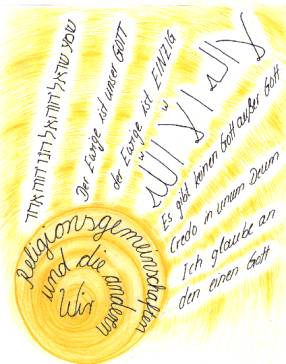 שמע ישראל יהוה אלהינו יהוה אחד
Der Ewige ist unser GOTT
der Ewige ist EINZIG
لا اله الا الله
Es gibt keinen Gott außer Gott
Credo in unum Deum
Ich glaube an
den einen Gott
Wir
und die anderen
Religionsgemeinschaften